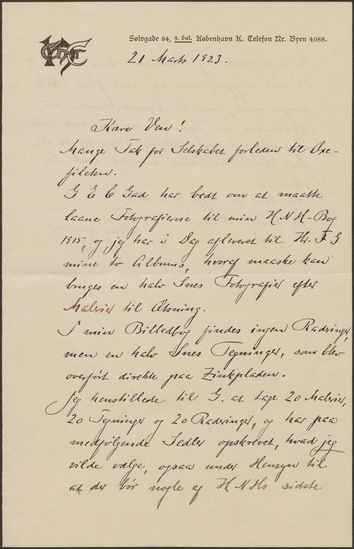 Sølvgade 94, 4. Sal. København K. Telefon Nr. Byen 4088.
21 Marts 1923.
Kære Ven!
Mange Tak for Selskabet forleden til Ope-
G E C Gad har bedt om at maatte
laane Fotografierne til min H N H-Bog
1915, og jeg har i Dag afleveret til Hr. F G
mine to Albums, hvoraf maaske kan
bruges en halv Snes Fotografier efter
Malerier til Ætsning.
I min Billedbog findes ingen Raderinger,
men en halv Snes Tegninger, som blev
overført direkte paa Zinkpladen.
Jeg henstillede til G. at tage 20 Malerier,
20 Tegninger og 20 Raderinger, og har paa
medfølgende Sedler opskrevet, hvad jeg
vilde vælge, ogsaa under Hensyn til
at der bør nogle af H N Hs sidste